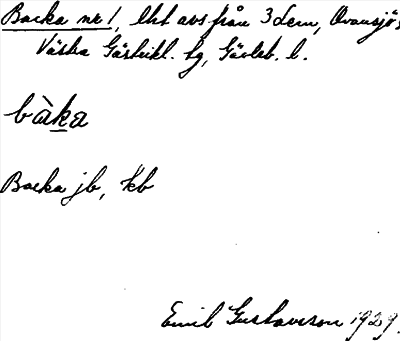 Backa nr 1, lht avs från 3 dem, Ovansjö s
Västra Gästrikl. tg, Gävleb. l.
bàka
Backa jb, kb
Emil Gustavsson 1929.